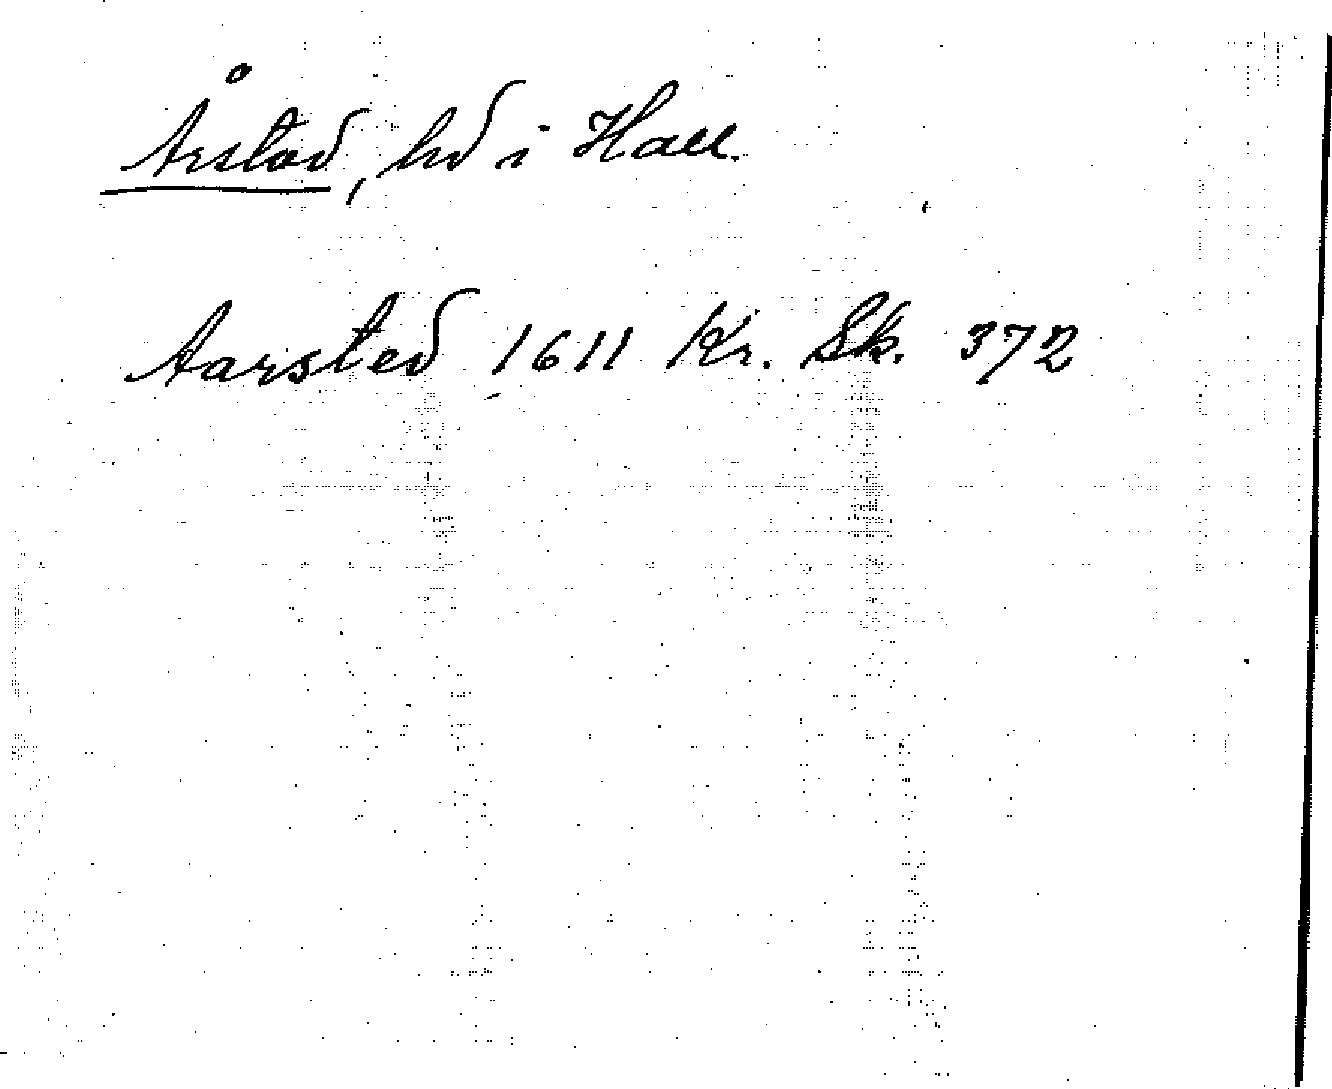 Årstad, hd i Hall.
Aarsted 1611 Kr. Sk. 372